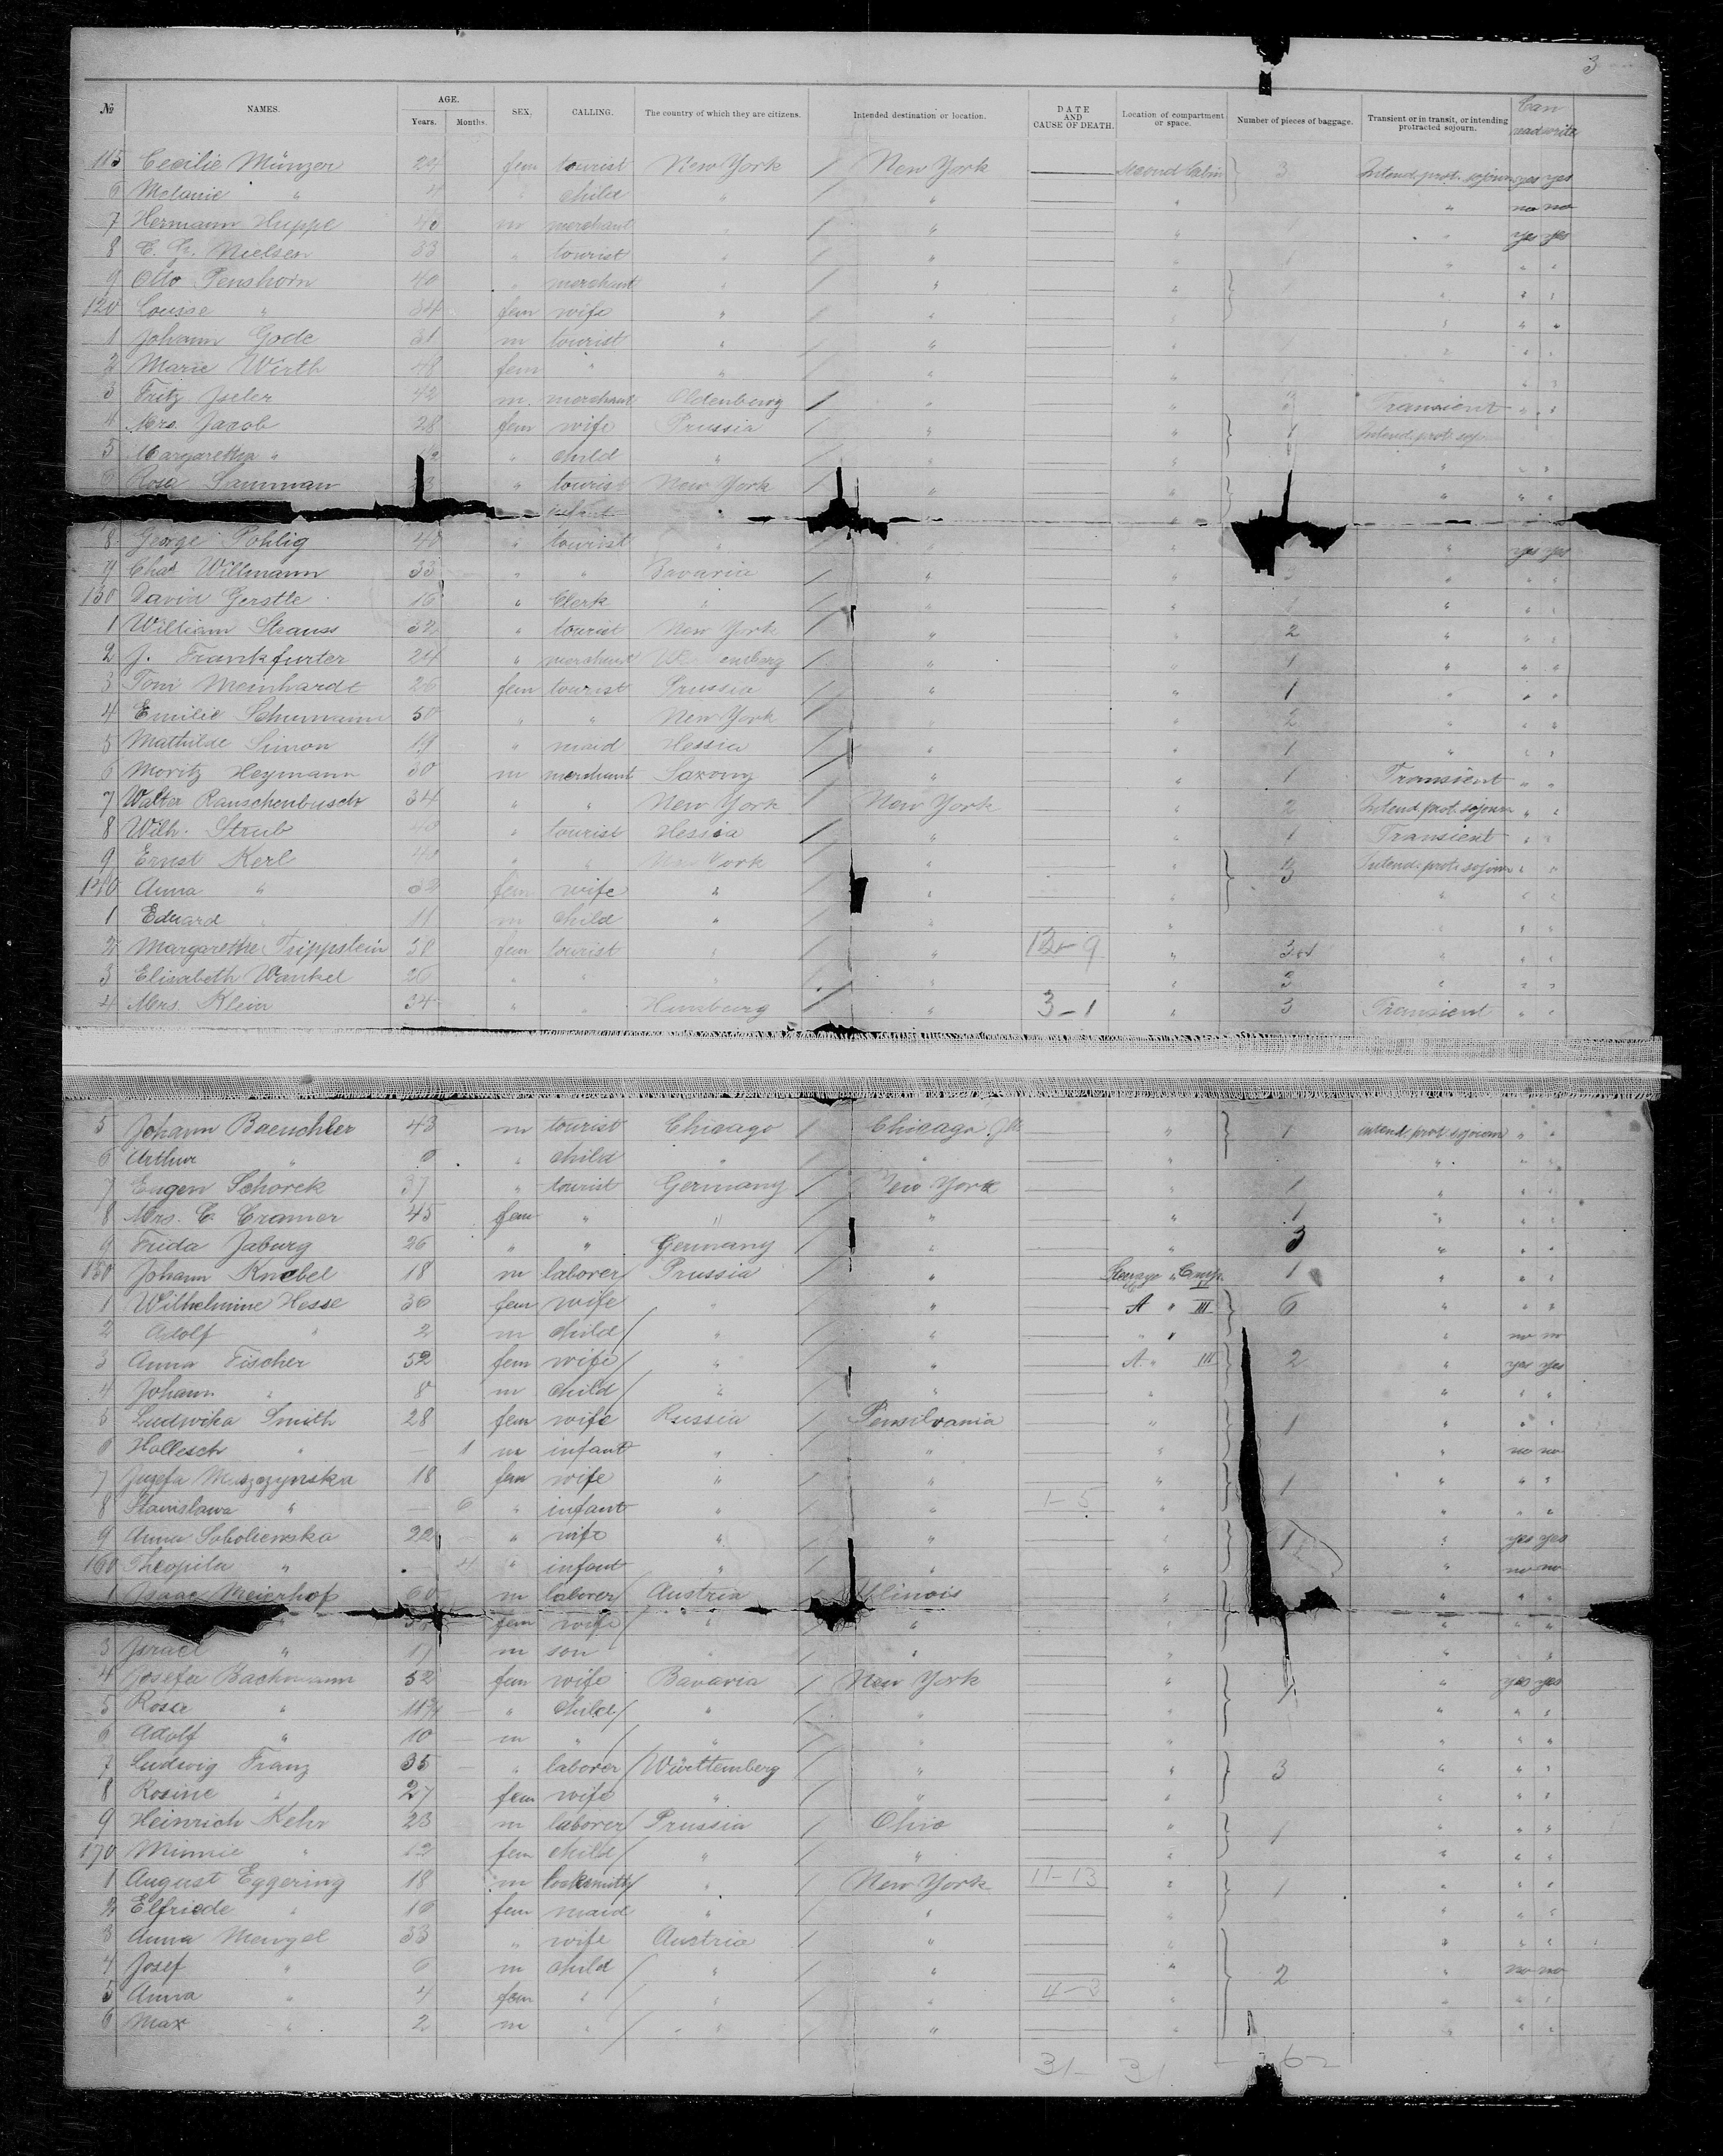 3
№ NAMES. AGE. Years. Months. SEX. CALLING. The country of which they are citizens. Intended destination or location. DATE AND CAUSE OF DEATH. Location of compartment or space. Number of pieces of baggage. Transient or in transit, or intending protracted sojourn. Can read write
115 Cecilie Münzer 29 fem tourist New York / New York Second Cabin 3 Intend. prot. sojourn yes yes
6 Melanie " 4 " child " / " " " no no
7 Hermann Huppe 40 m merchant / " " " yes yes
8 Nielsen 33 " tourist " / " " " " "
9 Otto Penshorn 40 " merchant " / " " " " "
120 Louise " 34 fem wife " / " " " " "
1 Johann Gode 31 m tourist " / " " " " "
2 Marie Wirth 48 fem " " / " " " "
3 Fritz Iseler 42 m. merchant Oldenburg / " " Transient " "
4 Mrs. Jacob 28 fem wife Prussia / " " 1 Intend. prot. sojourn
5 Margaretha " " child " / " " " " "
6 Rosa " tourist New York / " " " " "
infant "
8 George Pohlig 40 " tourist " / " " " yes yes
9 Chas Willmann 33 " " Bavaria / " " 3 " " "
130 David Gerstle 16 " Clerk " / " " 1 " " "
1 William Strauss 32 " tourist New York / " " 2 " " "
2 J. Frankfurter 24 " merchant / " " 1 " " "
3 Toni Meinhardt 26 fem tourist Prussia / " " 1 " " "
4 Emilie Schumann 50 " " New York / " " 2 " " "
5 Mathilde Simon 19 " maid Hessia / " " 1 " " "
6 Moritz Heymann 30 m merchant Saxony / " " 1 Transient " "
7 Walter Rauschenbusch 34 " " New York / New York " 2 Intend. prot. sojourn " "
8 Wilh. Strub 40 " tourist Hessia / " " 1 Transient " "
9 Ernst Kerl 40 " " New York / " " 3 Intend. prot. sojourn " "
140 Anna " 32 fem wife " / " " " " "
1 Eduard " 11 m child " / " " " " "
2 Margarethe Trippstein 50 fem tourist " / " 12-9 " 3 " " "
3 Elisabeth Wankel 26 " " " / " " 3 " " "
4 Mrs. Klein 34 " " Hamburg / " 3-1 " 3 Transient " "
5 Johann Baeuchler 43 m tourist Chicago / Chicago " 1 intend. prot. sojourn " "
6 Arthur " " child " / " " " " "
7 Eugen Schorck 37 " tourist Germany / New York " 1 " " "
8 Mrs. C. Cramer 45 fem " " / " " 1 " " "
9 Frida Jaburg 26 " " Germany / " " 3 " " "
150 Johann Knebel 18 m laborer Prussia / " Steerage Comp. II 1 " " "
1 Wilhelmine Hesse 36 fem wife " / " A " III 6 " " "
2 Adolf " 2 m child " / " " " " no no
3 Anna Fischer 52 fem wife " / " A " III 2 " yes yes
4 Johann " 8 m child " / " " " " "
5 Ludwika Smith 28 fem wife Russia / Pensilvania " 1 " " "
6 Hollesch " — 1 m infant " / " " " no no
7 Jusefa Muszczynska 18 fem wife " / " " 1 " " "
8 Stanislawa " — 6 " infant " / " 1-5 " " " "
9 Anna Soboliewska 22 — " wife " / " " 1 " yes yes
160 Theopila " 4 " infant " / " " " no no
1 Isaac Meierhof 60 m laborer Austria / Illinois " " " "
fem wife " " " " " "
3 Israel " 17 m son " / " " " "
4 Josefa Bachmann 52 fem wife Bavaria / New York " " yes yes
5 Rosa " " child " / " " " " "
6 Adolf " 10 m " " / " " " " "
7 Ludwig Franz 35 " laborer Württemberg / " " 3 " " "
8 Rosine " 27 fem wife " / " " " " "
9 Heinrich Kehr 23 m laborer Prussia / Ohio " 1 " " "
170 Minnie " 12 fem child " / " " " " "
1 August Eggering 18 m locksmith " / New York 11-13 " 1 " " "
2 Elfriede " 16 fem maid " / " " " " "
3 Anna Mengel 33 " wife Austria / " " " " "
4 Josef " 6 m child " / " " 2 " no no
5 Anna " 4 fem " " / " 4-3 " " " "
6 Max " 2 m " " / " " " " "
31- 31 - 62